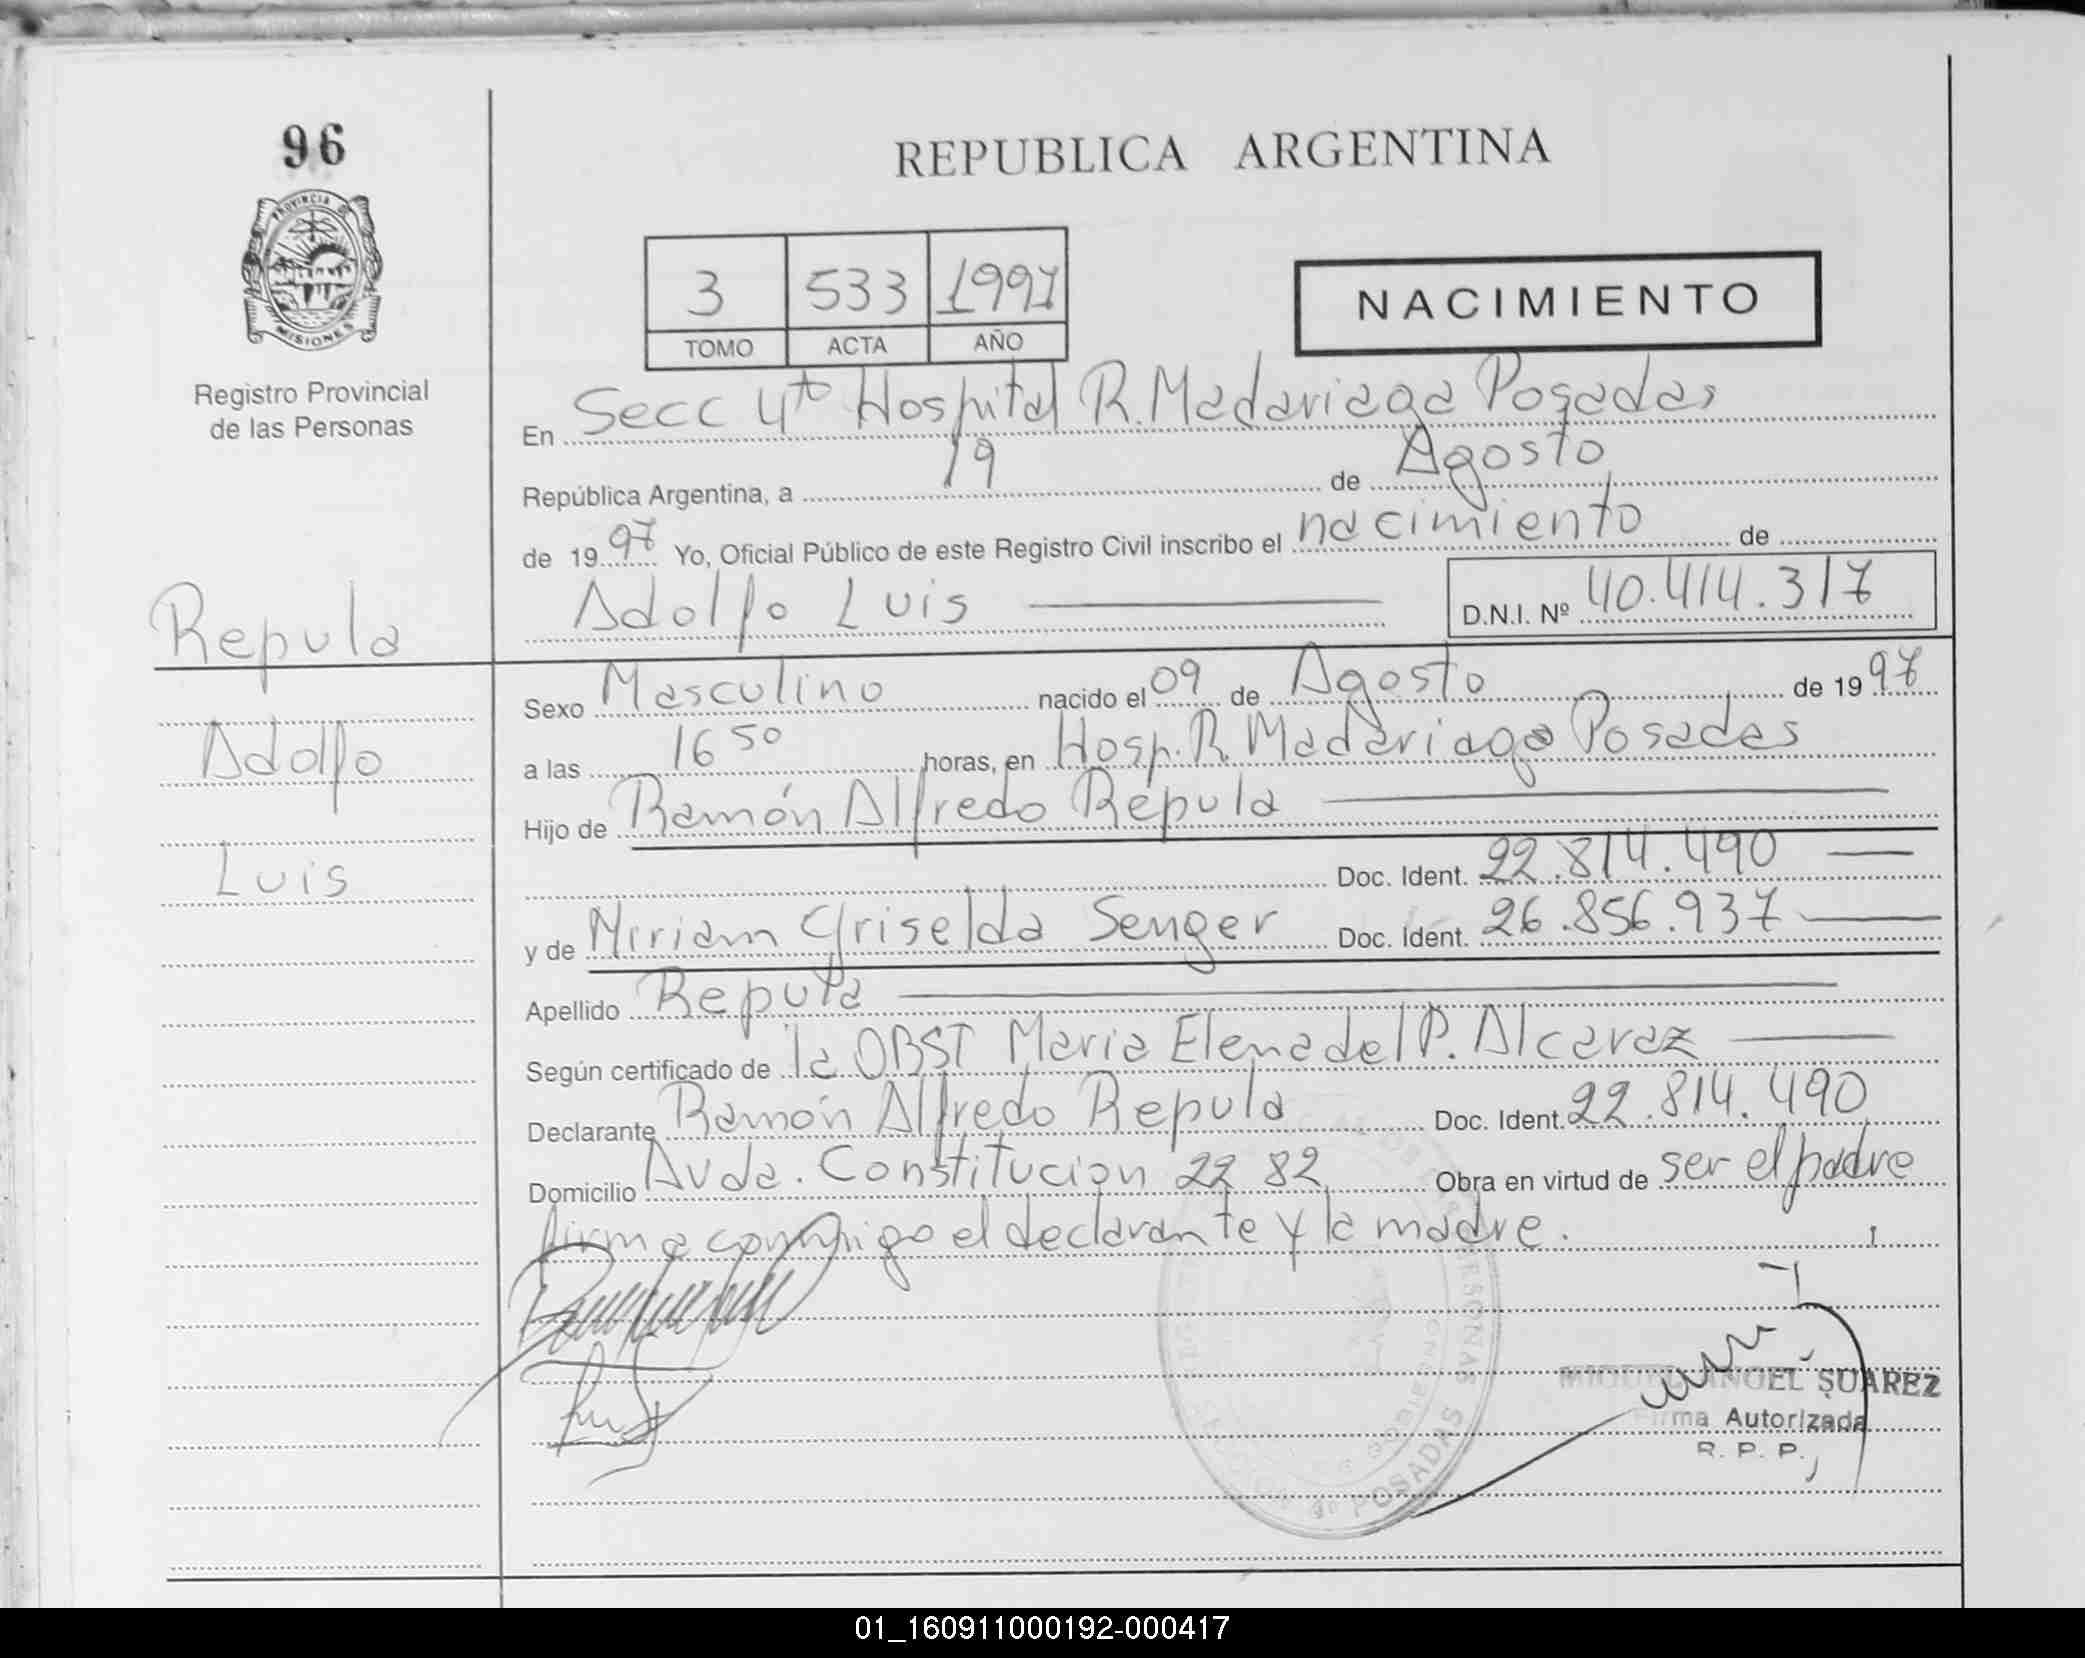 96
PROVINCIA D
MISIONES
Registro Provincial
de las Personas
Repula
Adolfo
Luis
REPUBLICA ARGENTINA
3 533 1997
TOMO ACTA AÑO
NACIMIENTO
En Secc 4ta Hospital R. Madariaga Posadas
República Argentina, a 19 de Agosto
de 1997 Yo, Oficial Público de este Registro Civil inscribo el nacimiento de
Adolfo Luis D.N.I. Nº 40.414.317
Sexo Masculino nacido el 09 de Agosto de 1997
a las 16 50 horas, en Hosp. R. Madariaga Posadas
Hijo de Ramón Alfredo Repula
Doc. Ident. 22.814.490
y de Miriam Griselda Senger Doc. Ident. 26.856.937
Apellido Repula
Según certificado de la OBST Maria Elena del P. Alcaraz
Declarante Ramón Alfredo Repula Doc. Ident. 22.814.490
Domicilio Avda. Constitucion 22 82 Obra en virtud de ser el padre
firma conmigo el declarante y la madre.
MIGUEL ANGEL SUAREZ
Firma Autorizada
R. P. P.
POSADAS
01_160911000192-000417